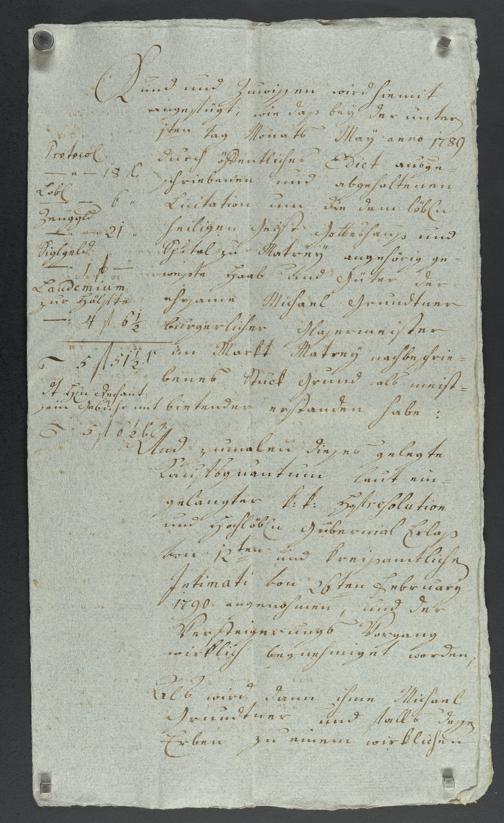 Kund und Zuwissen wird hiemit
angefügt, wie daß bey der unter
isten tag Monats May anno 1789
durch öffentliches Edict ausge
schriebenen und abgehaltenen
Licitation um die dem löbl.
heiligen Geist Gotteshaus und
Spital zu Matrey angehörig ge-
weste Haab und Güter der
ehrsame Michael Grundtner
burgerlicher Glasermeister
im Markt Matrey nachbeschrie-
benes Stuck Grund als meist-
bietender erstanden habe:
Und zumalen dieses gelegte
Kaufsquantum laut ein-
gelangter k: k: Hofresolution
und Hochlöbl. Gubernial Erlaß
von 12ten und kreisamtliche
Intimati von 26ten February
1790 angenohmen, und der
Versteigerungs Vorgang
wirklich begnehmiget worden,
Als wird dann ihme Michael
Grundtner und falls dessen
Erben zu einem wirklichen
Protocol
18 x
Löbl.
6
Zenggld
21
Siglgeld
1 f
Laudemium
zur Hälfte
4 f 6 1/2
5 f 51 1/2 x
5 f 6 1/2 x